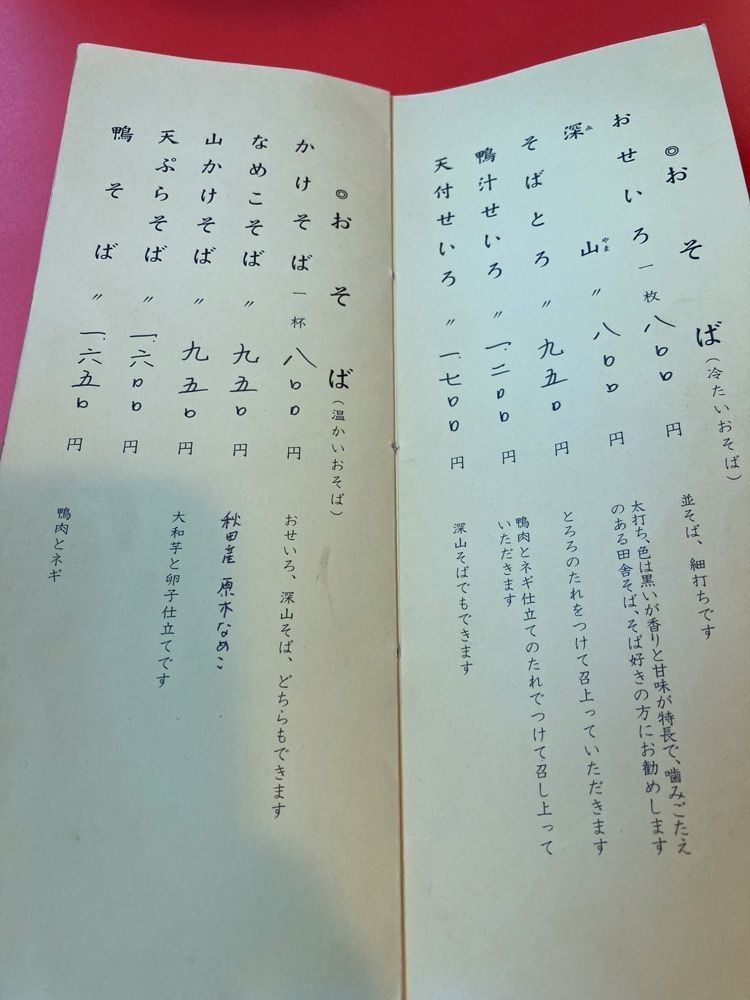 ◎おそば（冷たいおそば）
おせいろ 一枚 八〇〇円 並そば、細打ちです
深山 〃 八〇〇円 太打ち、色は黒いが香りと甘味が特長で、噛みごたえ
のある田舎そば、そば好きの方にお勧めします
みやま
そばとろ 〃 九五〇円 とろろのたれをつけて召上っていただきます
鴨汁せいろ 〃 一、二〇〇円 鴨肉とネギ仕立てのたれでつけて召し上って
いただきます
天付せいろ 〃 一、七〇〇円 深山そばでもできます
◎おそば（温かいおそば）
かけそば 一杯 八〇〇円 おせいろ、深山そば、どちらもできます
なめこそば 〃 九五〇円 秋田産 原木なめこ
山かけそば 〃 九五〇円 大和芋と卵子仕立てです
天ぷらそば 〃 一、六〇〇円
鴨そば 〃 一、六五〇円 鴨肉とネギ